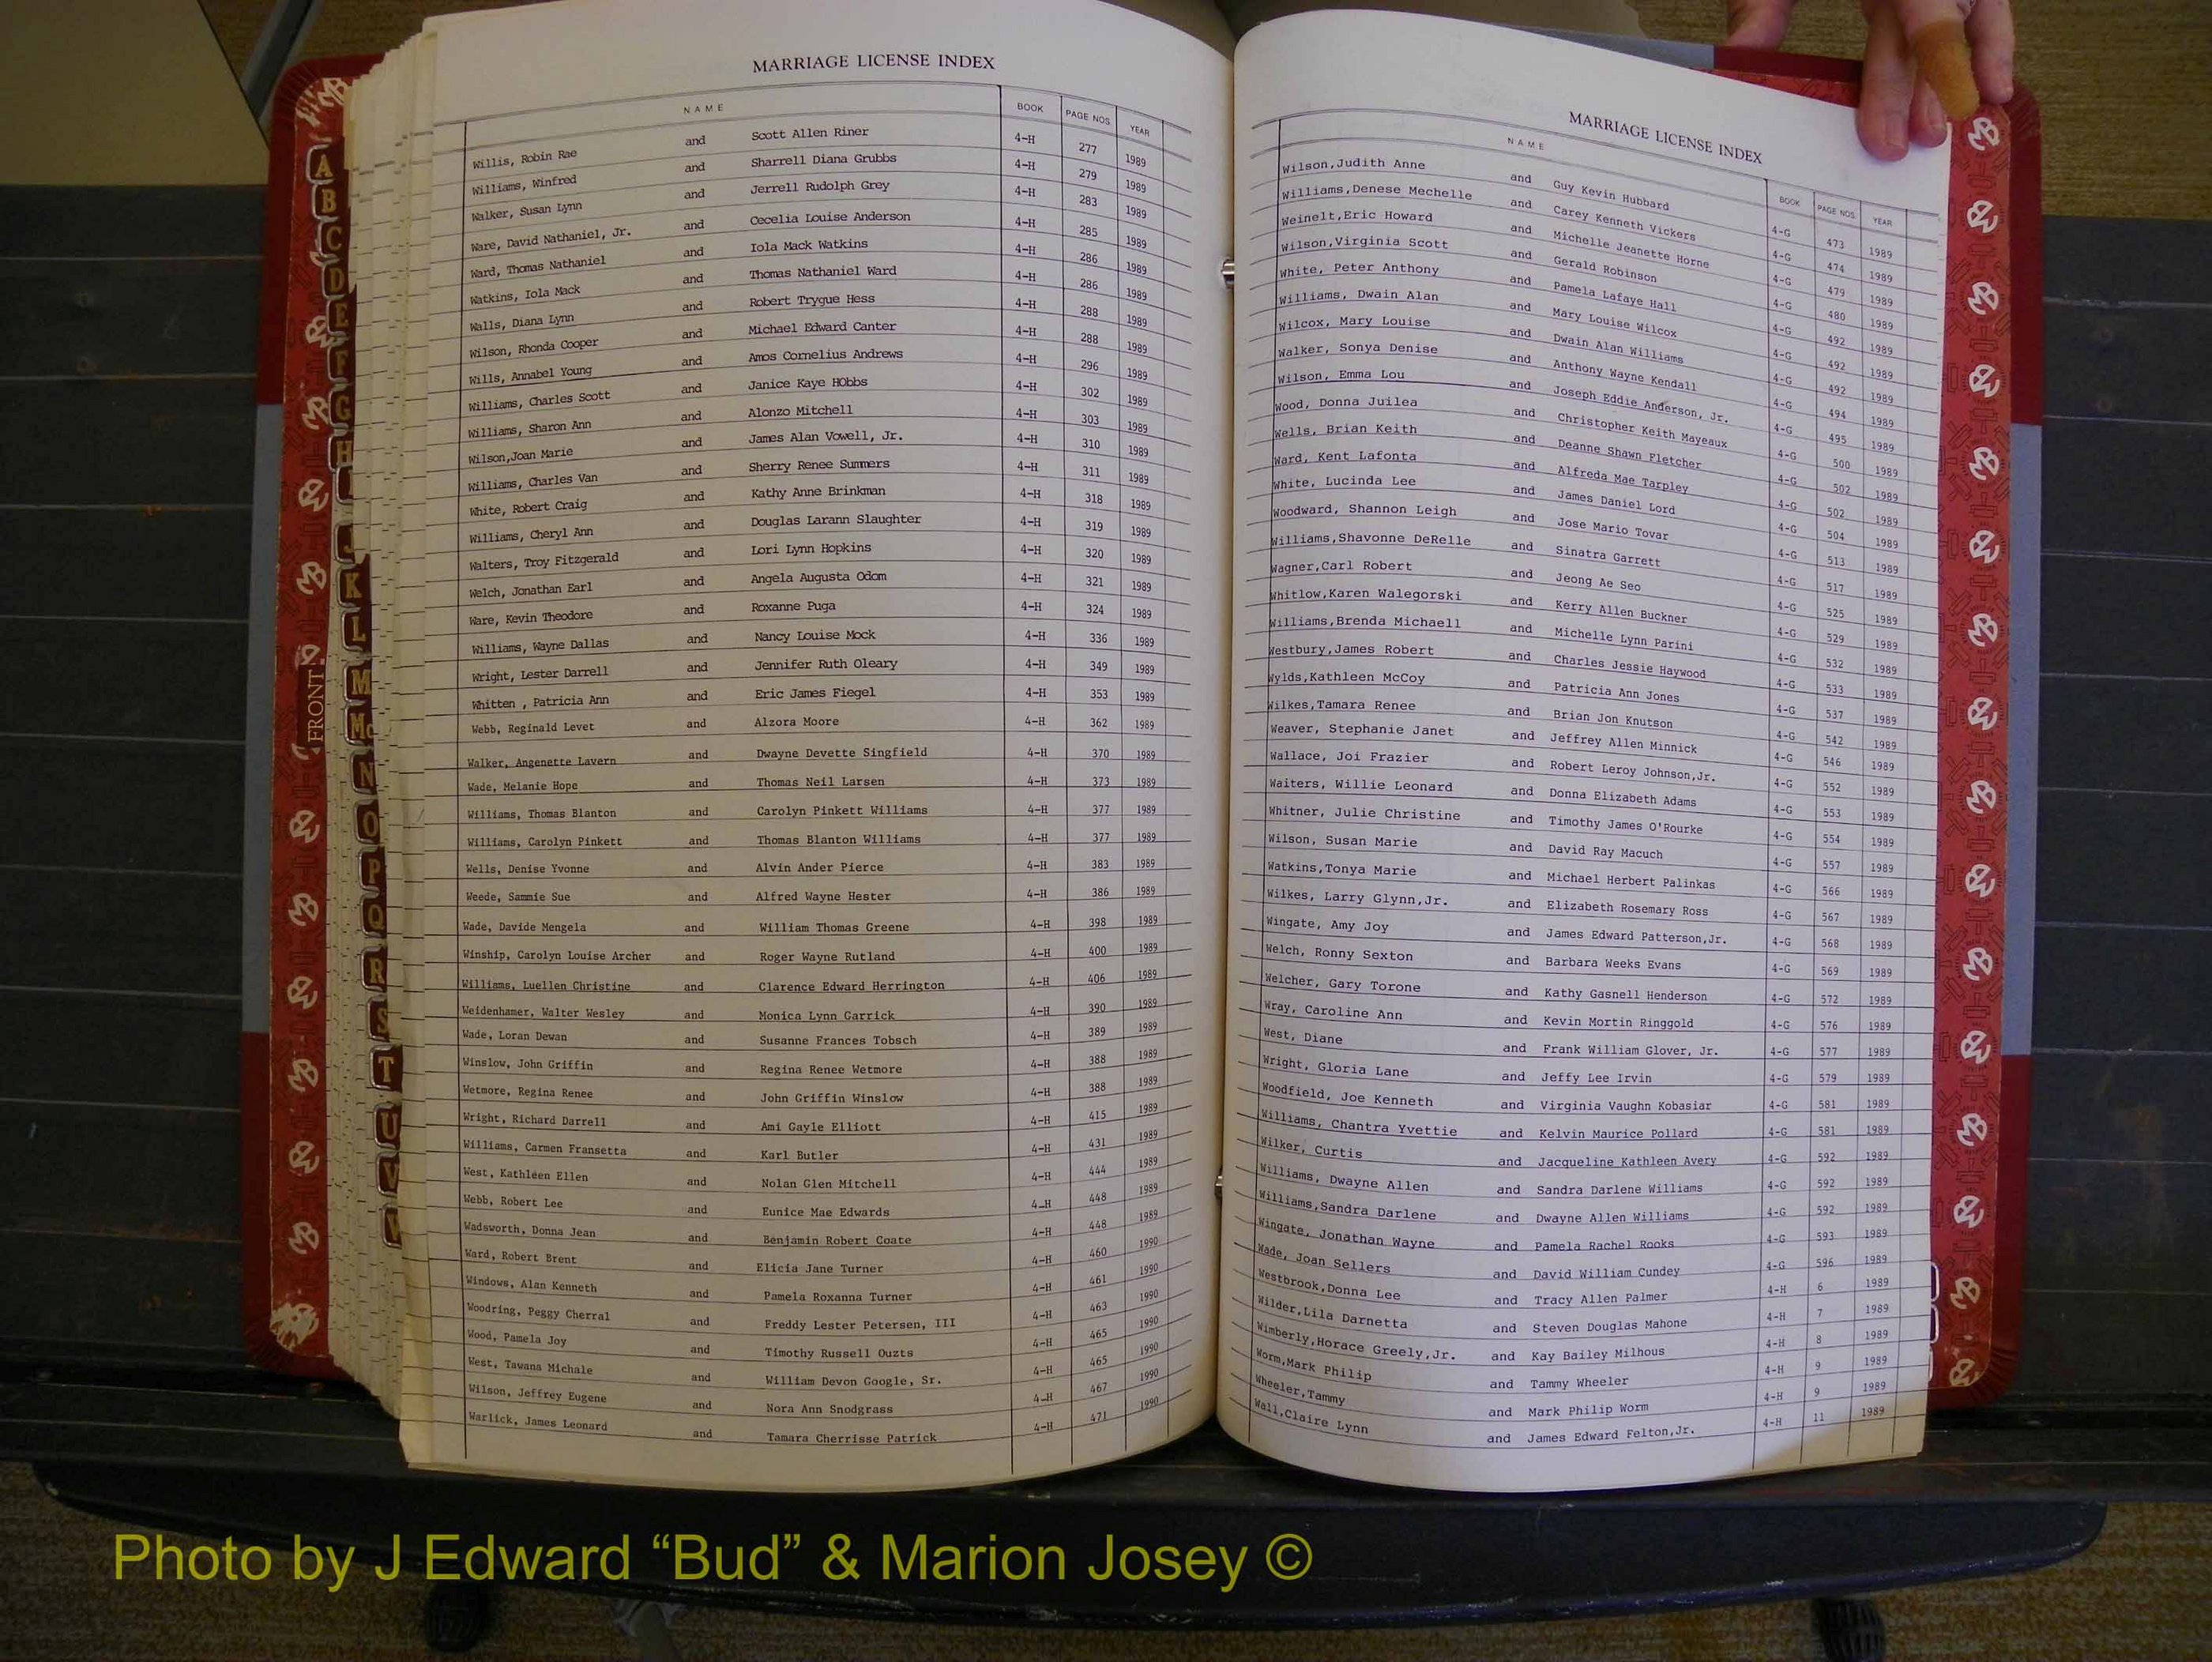 MARRIAGE LICENSE INDEX
NAME BOOK PAGE NOS. YEAR
Willis, Robin Rae and Scott Allen Riner 4-H 277 1989
Williams, Winfred and Sharrell Diana Grubbs 4-H 279 1989
Walker, Susan Lynn and Jerrell Rudolph Grey 4-H 283 1989
Ware, David Nathaniel, Jr. and Cecelia Louise Anderson 4-H 285 1989
Ward, Thomas Nathaniel and Iola Mack Watkins 4-H 286 1989
Watkins, Iola Mack and Thomas Nathaniel Ward 4-H 286 1989
Walls, Diana Lynn and Robert Trygue Hess 4-H 288 1989
Wilson, Rhonda Cooper and Michael Edward Canter 4-H 288 1989
Wills, Annabel Young and Amos Cornelius Andrews 4-H 296 1989
Williams, Charles Scott and Janice Kaye HObbs 4-H 302 1989
Williams, Sharon Ann and Alonzo Mitchell 4-H 303 1989
Wilson,Joan Marie and James Alan Vowell, Jr. 4-H 310 1989
Williams, Charles Van and Sherry Renee Summers 4-H 311 1989
White, Robert Craig and Kathy Anne Brinkman 4-H 318 1989
Williams, Cheryl Ann and Douglas Larann Slaughter 4-H 319 1989
Walters, Troy Fitzgerald and Lori Lynn Hopkins 4-H 320 1989
Welch, Jonathan Earl and Angela Augusta Odom 4-H 321 1989
Ware, Kevin Theodore and Roxanne Puga 4-H 324 1989
Williams, Wayne Dallas and Nancy Louise Mock 4-H 336 1989
Wright, Lester Darrell and Jennifer Ruth Oleary 4-H 349 1989
Whitten , Patricia Ann and Eric James Fiegel 4-H 353 1989
Webb, Reginald Levet and Alzora Moore 4-H 362 1989
Walker, Angenette Lavern and Dwayne Devette Singfield 4-H 370 1989
Wade, Melanie Hope and Thomas Neil Larsen 4-H 373 1989
Williams, Thomas Blanton and Carolyn Pinkett Williams 4-H 377 1989
Williams, Carolyn Pinkett and Thomas Blanton Williams 4-H 377 1989
Wells, Denise Yvonne and Alvin Ander Pierce 4-H 383 1989
Weede, Sammie Sue and Alfred Wayne Hester 4-H 386 1989
Wade, Davide Mengela and William Thomas Greene 4-H 398 1989
Winship, Carolyn Louise Archer and Roger Wayne Rutland 4-H 400 1989
Williams, Luellen Christine and Clarence Edward Herrington 4-H 406 1989
Weidenhamer, Walter Wesley and Monica Lynn Garrick 4-H 390 1989
Wade, Loran Dewan and Susanne Frances Tobsch 4-H 389 1989
Winslow, John Griffin and Regina Renee Wetmore 4-H 388 1989
Wetmore, Regina Renee and John Griffin Winslow 4-H 388 1989
Wright, Richard Darrell and Ami Gayle Elliott 4-H 415 1989
Williams, Carmen Fransetta and Karl Butler 4-H 431 1989
West, Kathleen Ellen and Nolan Glen Mitchell 4-H 444 1989
Webb, Robert Lee and Eunice Mae Edwards 4-H 448 1989
Wadsworth, Donna Jean and Benjamin Robert Coate 4-H 448 1989
Ward, Robert Brent and Elicia Jane Turner 4-H 460 1990
Windows, Alan Kenneth and Pamela Roxanna Turner 4-H 461 1990
Woodring, Peggy Cherral and Freddy Lester Petersen, III 4-H 463 1990
Wood, Pamela Joy and Timothy Russell Ouzts 4-H 465 1990
West, Tawana Michale and William Devon Google, Sr. 4-H 465 1990
Wilson, Jeffrey Eugene and Nora Ann Snodgrass 4-H 467 1990
Warlick, James Leonard and Tamara Cherrisse Patrick 4-H 471 1990
MARRIAGE LICENSE INDEX
NAME BOOK PAGE NOS. YEAR
Wilson,Judith Anne and Guy Kevin Hubbard 4-G 473 1989
Williams,Denese Mechelle and Carey Kenneth Vickers 4-G 474 1989
Weinelt,Eric Howard and Michelle Jeanette Horne 4-G 479 1989
Wilson,Virginia Scott and Gerald Robinson 4-G 480 1989
White, Peter Anthony and Pamela Lafaye Hall 4-G 492 1989
Williams, Dwain Alan and Mary Louise Wilcox 4-G 492 1989
Wilcox, Mary Louise and Dwain Alan Williams 4-G 492 1989
Walker, Sonya Denise and Anthony Wayne Kendall 4-G 494 1989
Wilson, Emma Lou and Joseph Eddie Anderson, Jr. 4-G 495 1989
Wood, Donna Juilea and Christopher Keith Mayeaux 4-G 500 1989
Wells, Brian Keith and Deanne Shawn Fletcher 4-G 502 1989
Ward, Kent Lafonta and Alfreda Mae Tarpley 4-G 502 1989
White, Lucinda Lee and James Daniel Lord 4-G 504 1989
Woodward, Shannon Leigh and Jose Mario Tovar 4-G 513 1989
Williams,Shavonne DeRelle and Sinatra Garrett 4-G 517 1989
Wagner,Carl Robert and Jeong Ae Seo 4-G 525 1989
Whitlow,Karen Walegorski and Kerry Allen Buckner 4-G 529 1989
Williams,Brenda Michaell and Michelle Lynn Parini 4-G 532 1989
Westbury,James Robert and Charles Jessie Haywood 4-G 533 1989
Wylds,Kathleen McCoy and Patricia Ann Jones 4-G 537 1989
Wilkes,Tamara Renee and Brian Jon Knutson 4-G 542 1989
Weaver, Stephanie Janet and Jeffrey Allen Minnick 4-G 546 1989
Wallace, Joi Frazier and Robert Leroy Johnson,Jr. 4-G 552 1989
Waiters, Willie Leonard and Donna Elizabeth Adams 4-G 553 1989
Whitner, Julie Christine and Timothy James O'Rourke 4-G 554 1989
Wilson, Susan Marie and David Ray Macuch 4-G 557 1989
Watkins,Tonya Marie and Michael Herbert Palinkas 4-G 566 1989
Wilkes, Larry Glynn,Jr. and Elizabeth Rosemary Ross 4-G 567 1989
Wingate, Amy Joy and James Edward Patterson,Jr. 4-G 568 1989
Welch, Ronny Sexton and Barbara Weeks Evans 4-G 569 1989
Welcher, Gary Torone and Kathy Gasnell Henderson 4-G 572 1989
Wray, Caroline Ann and Kevin Mortin Ringgold 4-G 576 1989
West, Diane and Frank William Glover, Jr. 4-G 577 1989
Wright, Gloria Lane and Jeffy Lee Irvin 4-G 579 1989
Woodfield, Joe Kenneth and Virginia Vaughn Kobasiar 4-G 581 1989
Williams, Chantra Yvettie and Kelvin Maurice Pollard 4-G 581 1989
Wilker, Curtis and Jacqueline Kathleen Avery 4-G 592 1989
Williams, Dwayne Allen and Sandra Darlene Williams 4-G 592 1989
Williams,Sandra Darlene and Dwayne Allen Williams 4-G 592 1989
Wingate, Jonathan Wayne and Pamela Rachel Rooks 4-G 593 1989
Wade, Joan Sellers and David William Cundey 4-G 596 1989
Westbrook,Donna Lee and Tracy Allen Palmer 4-H 6 1989
Wilder,Lila Darnetta and Steven Douglas Mahone 4-H 7 1989
Wimberly,Horace Greely,Jr. and Kay Bailey Milhous 4-H 8 1989
Worm,Mark Philip and Tammy Wheeler 4-H 9 1989
Wheeler,Tammy and Mark Philip Worm 4-H 9 1989
Wall,Claire Lynn and James Edward Felton,Jr. 4-H 11 1989
A
B
C
D
E
F
G
H
J
K
L
M
Mc
N
O
P
Q
R
S
T
U
V
FRONT
Photo by J Edward “Bud” & Marion Josey ©